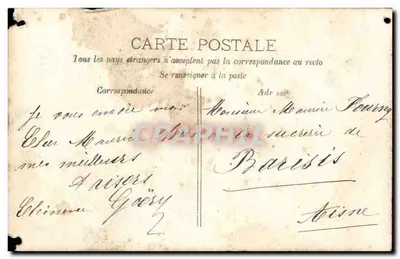 CARTE POSTALE
Tous les pays étrangers n'acceptent pas la correspondance au recto
Se renseigner à la poste
Correspondance
Je vous envoie mon
Cher Maurice
mes meilleurs
baisers
Clémence Goëry
Adresse
Monsieur Maurice Fourny
sucrerie de
Barisis
Aisne